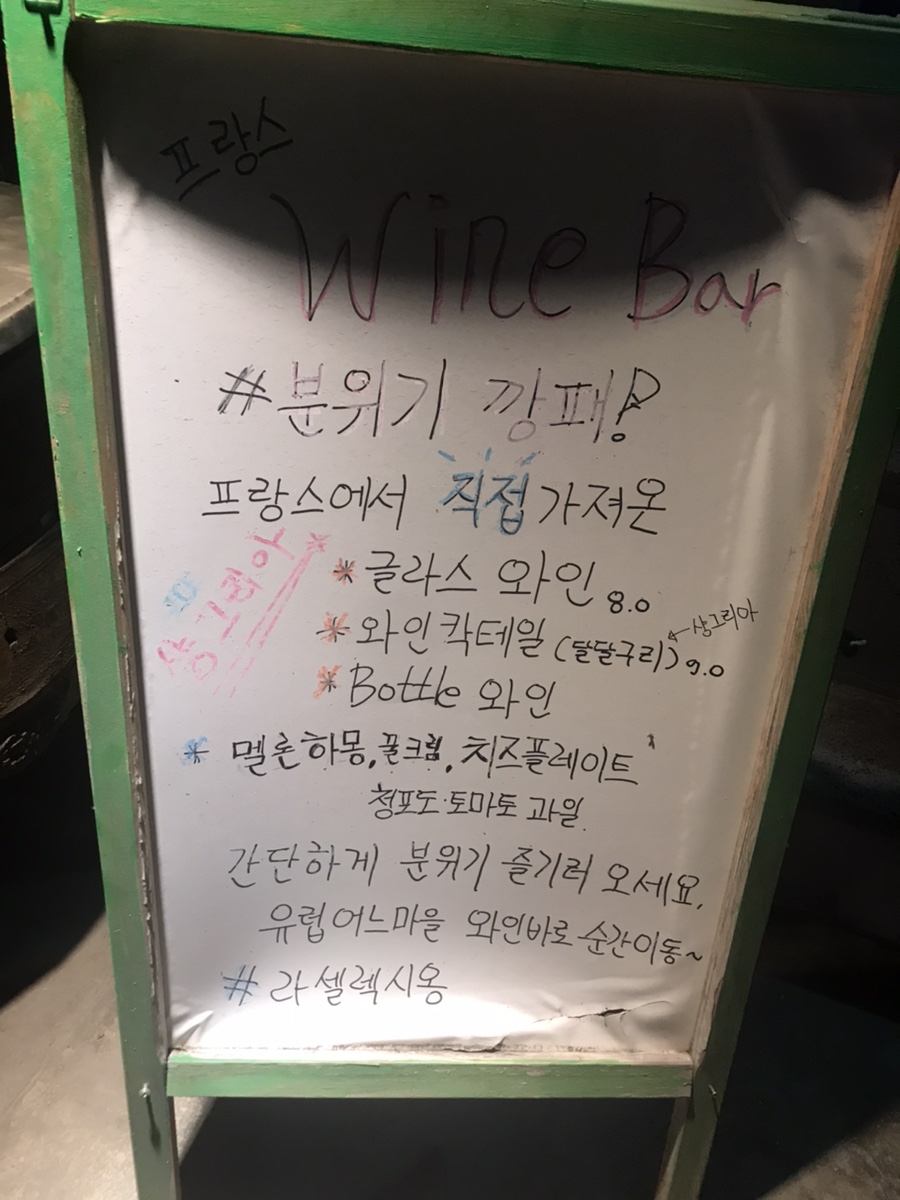 프랑스
Wine Bar
#분위기 깡패!
프랑스에서 직접 가져온
상그리아
* 글라스 와인 8.0
* 와인칵테일 (달달구리) 9.0 ← 상그리아
* Bottle 와인
* 멜론하몽, 꿀크림, 치즈플레이트
청포도·토마토 과일
간단하게 분위기 즐기러 오세요.
유럽어느마을 와인바로 순간이동~
# 라셀렉시옹